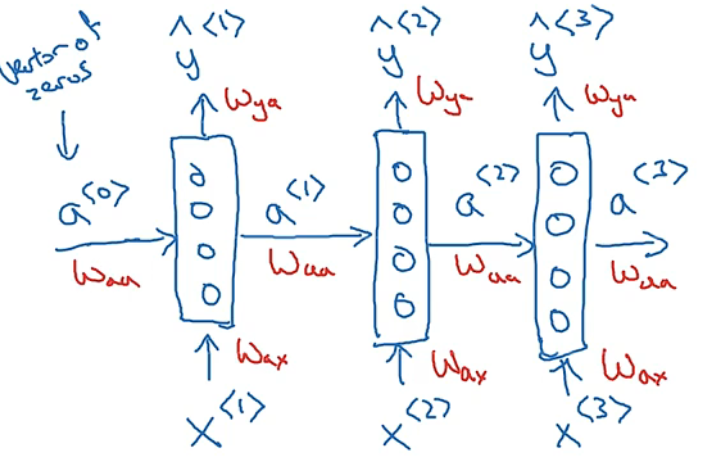 vector of
zeros
ŷ<1> ŷ<2> ŷ<3>
Wya Wya Wya
a<0> a<1> a<2> a<3>
Waa Waa Waa Waa
Wax Wax Wax
x<1> x<2> x<3>